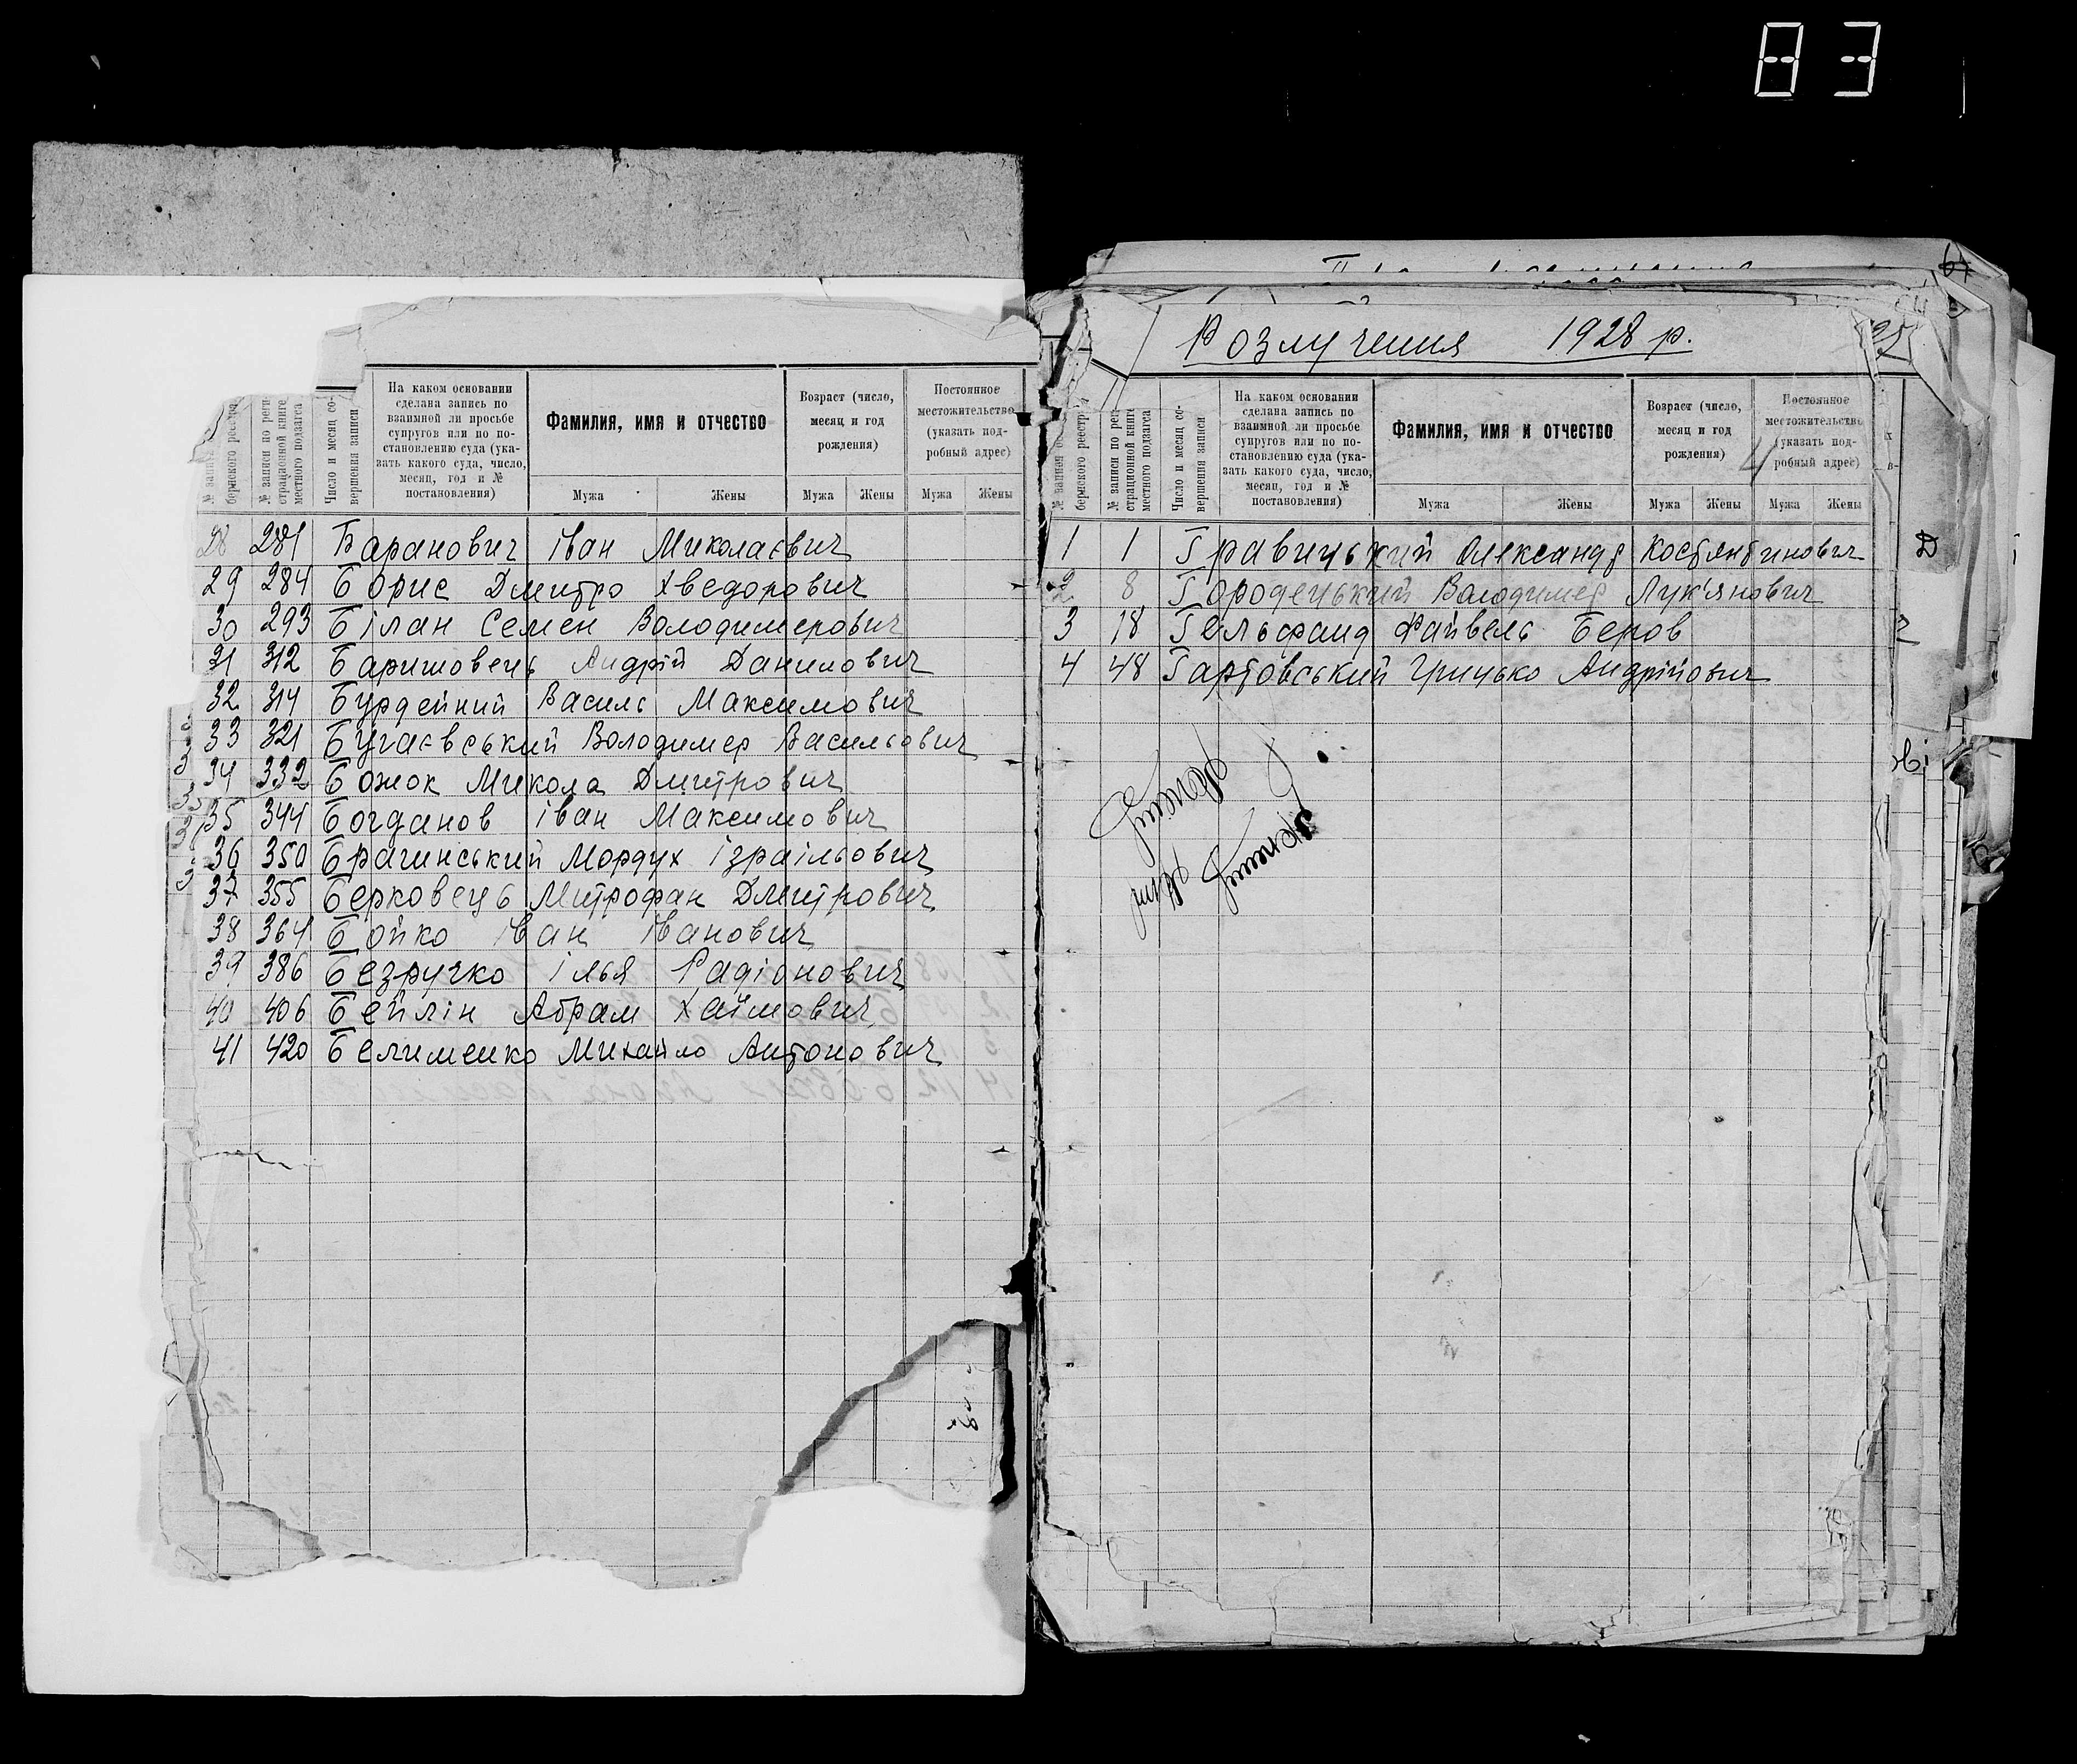 83
№ записи
бернского реестра
№ записи по реги-
страционной книге
местного подзагса
Число и месяц со-
вершения записи
На каком основании
сделана запись по
взаимной ли просьбе
супругов или по по-
становлению суда (ука-
зать какого суда, число,
месяц, год и №
постановления)
Фамилия, имя и отчество
Мужа Жены
Возраст (число,
месяц и год
рождения)
Мужа Жены
Постоянное
местожительство
(указать под-
робный адрес)
Мужа Жены
28 281 Баранович Іван Миколаєвич
29 284 Борис Дмитро Хведорович
30 293 Білан Семен Володимерович
31 312 Баришовець Андрій Данилович
32 314 Бурдейний Василь Максимович
33 321 Бугаєвський Володимер Васильович
34 332 Божок Микола Дмитрович
35 344 Богданов Іван Максимович
36 350 Брагинський Мордух Ізраїльович
37 355 Берковець Митрофан Дмитрович
38 364 Бойко Іван Іванович
39 386 Безручко Ілья Радіонович
40 406 Бейлін Абрам Хаїмович
41 420 Белименко Михайло Антонович
Розлучення 1928 р.
№ записи
бернского реестра
№ записи по рег
страционной книге
местного подзагса
Число и месяц со-
вершения записи
На каком основании
сделана запись по
взаимной ли просьбе
супругов или по по-
становлению суда (ука-
зать какого суда, число,
месяц, год и №
постановления)
Фамилия, имя и отчество
Мужа Жены
Возраст (число,
месяц и год
рождения)
Мужа Жены
Постоянное
местожительство
(указать под-
робный адрес)
Мужа Жены
1 1 Гравицький Олександр Костянтинович
2 8 Городецький Володимер Лук'янович
3 18 Гельфанд Файвель Беров
4 48 Гартовський Грицько Андрійович